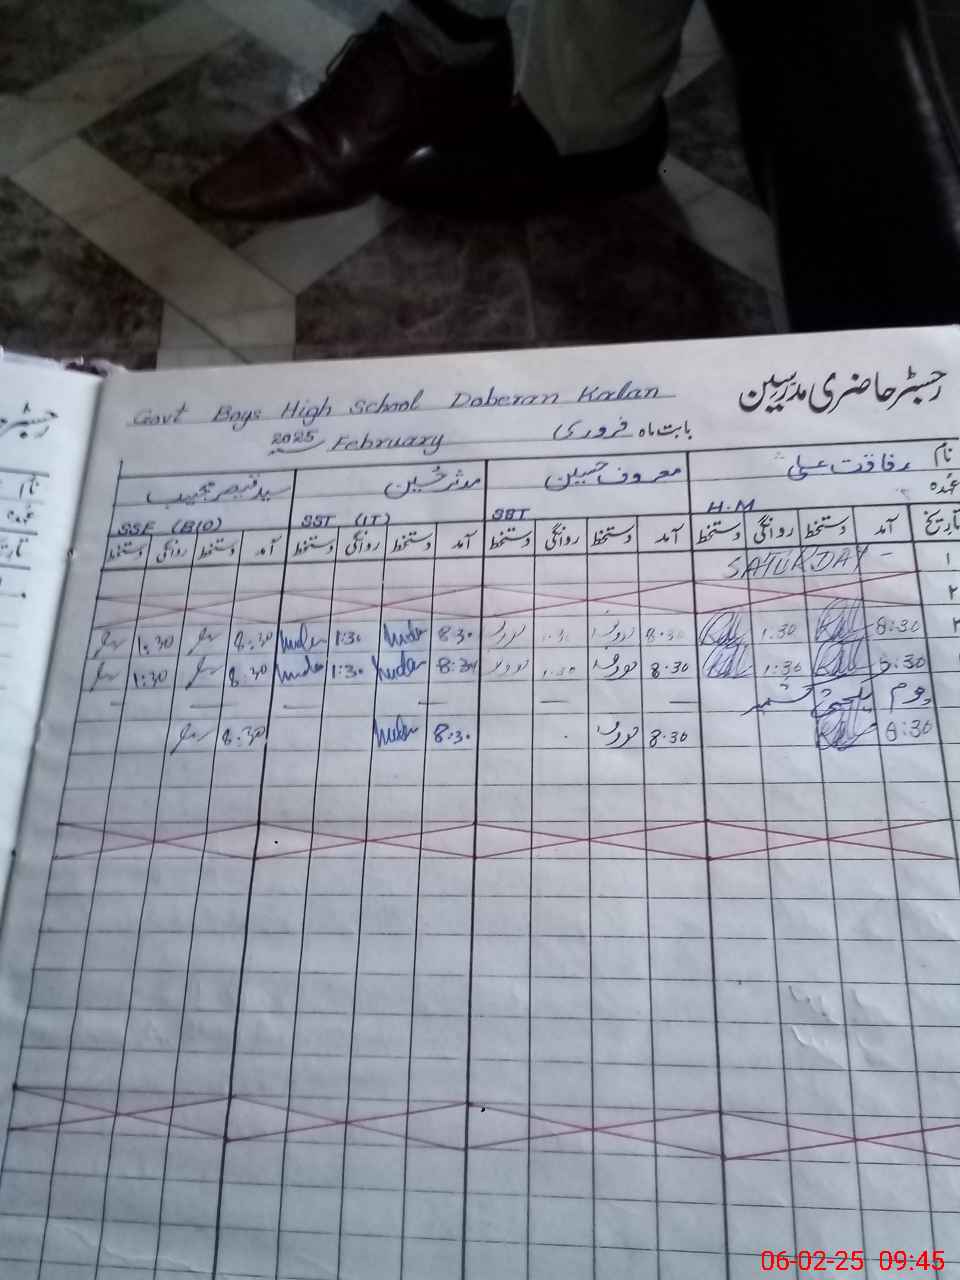 رجسٹر حاضری مدرسین
Govt Boys High School Doberan Kalan
بابت ماہ فروری
2025 February
نام رفاقت علی معروف حسین مدثر حسین سید قیصر مجیب
عہدہ H.M SST SST (IT) SSE (BIO)
تاریخ آمد دستخط روانگی دستخط آمد دستخط روانگی دستخط آمد دستخط روانگی دستخط آمد دستخط روانگی دستخط
۱ SATURDAY
۲
۳ 8:30 1:30 8:30 1:30 8:30 1:30 8:30 1:30
8:30 1:30 8:30 1:30 8:30 1:30 8:30 1:30
یوم یکجہتی کشمیر
8:30 8:30 8:30 8:30
06-02-25 09:45